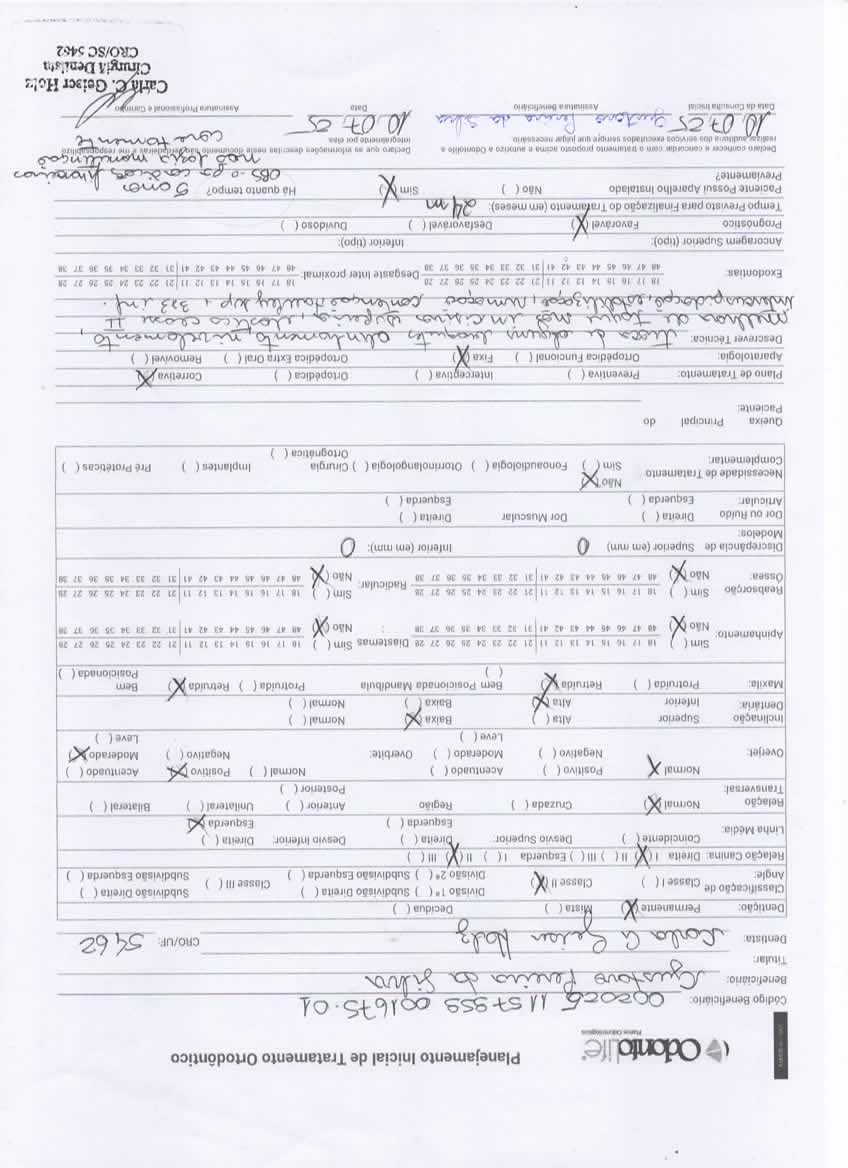 OdontoLife
Planos Odontológicos
Planejamento Inicial de Tratamento Ortodôntico
Código Beneficiário: 002025 1157959 001675.01
Beneficiário: Gustavo Pereira da Silva
Titular:
Dentista: Carla G Geiser Holz CRO/UF: 5462
Dentição: Permanente (X) Mista ( ) Decídua ( )
Classificação de Angle: Classe I ( ) Classe II (X) Divisão 1ª ( ) Subdivisão Direita ( ) Classe III ( ) Subdivisão Direita ( )
Divisão 2ª ( ) Subdivisão Esquerda ( ) Subdivisão Esquerda ( )
Relação Canina: Direita I (X) II ( ) III ( ) Esquerda I ( ) II (X) III ( )
Linha Média: Coincidente ( ) Desvio Superior: Direita ( ) Desvio Inferior: Direita ( )
Esquerda ( ) Esquerda (X)
Relação Transversal: Normal (X) Cruzada ( ) Região Anterior ( ) Unilateral ( ) Bilateral ( )
Posterior ( )
Overjet: Normal X Positivo ( ) Acentuado ( ) Overbite: Normal ( ) Positivo (X) Acentuado ( )
Negativo ( ) Moderado ( ) Negativo ( ) Moderado (X)
Leve ( ) Leve ( )
Inclinação Dentária: Superior Alta ( ) Baixa (X) Normal ( )
Inferior Alta (X) Baixa ( ) Normal ( )
Maxila: Protruída ( ) Retruída (X) Bem Posicionada ( ) Mandíbula Protruída ( ) Retruída (X) Bem Posicionada ( )
Apinhamento: Sim ( ) 18 17 16 15 14 13 12 11 | 21 22 23 24 25 26 27 28 Diastemas : Sim ( ) 18 17 16 15 14 13 12 11 | 21 22 23 24 25 26 27 28
Não (X) 48 47 46 45 44 43 42 41 | 31 32 33 34 35 36 37 38 Não (X) 48 47 46 45 44 43 42 41 | 31 32 33 34 35 36 37 38
Reabsorção Óssea: Sim ( ) 18 17 16 15 14 13 12 11 | 21 22 23 24 25 26 27 28 Radicular: Sim ( ) 18 17 16 15 14 13 12 11 | 21 22 23 24 25 26 27 28
Não (X) 48 47 46 45 44 43 42 41 | 31 32 33 34 35 36 37 38 Não (X) 48 47 46 45 44 43 42 41 | 31 32 33 34 35 36 37 38
Discrepância de Modelos: Superior (em mm) 0 Inferior (em mm): 0
Dor ou Ruído Articular: Direita ( ) Dor Muscular Direita ( )
Esquerda ( ) Esquerda ( )
Necessidade de Tratamento Complementar: Não (X)
Sim ( ) Fonoaudiologia ( ) Otorrinolaringologia ( ) Cirurgia Ortognática ( ) Implantes ( ) Pré Protéticas ( )
Queixa Principal do Paciente:
Plano de Tratamento: Preventiva ( ) Interceptiva ( ) Ortopédica ( ) Corretiva (X)
Aparatologia: Ortopédica Funcional ( ) Fixa (X) Ortopédica Extra Oral ( ) Removível ( )
Descrever Técnica: troca de alguns braquets alinhamento nivelamento,
melhora de torque nos incisivos superiores, elástico classe II
intercuspidação, estabilização, remoção contenção hawley sup, 3x3 inf.
Exodontias: 18 17 16 15 14 13 12 11 | 21 22 23 24 25 26 27 28 Desgaste Inter proximal: 18 17 16 15 14 13 12 11 | 21 22 23 24 25 26 27 28
48 47 46 45 44 43 42 41 | 31 32 33 34 35 36 37 38 48 47 46 45 44 43 42 41 | 31 32 33 34 35 36 37 38
Ancoragem Superior (tipo): Inferior (tipo):
Prognóstico Favorável (X) Desfavorável ( ) Duvidoso ( )
Tempo Previsto para Finalização do Tratamento (em meses): 24 m
Paciente Possui Aparelho Instalado Previamente? Não ( ) Sim (X) Há quanto tempo? 5 anos
OBS -
não fazia manutenção
corretamente
Declaro conhecer e concordar com o tratamento proposto acima e autorizo a Odontolife a realizar auditoria dos serviços executados sempre que julgar necessário
Declaro que as informações descritas neste documento são verdadeiras e me responsabilizo integralmente por elas
10.07.25 Gustavo Pereira da Silva 10.07.25
Data da Consulta Inicial Assinatura Beneficiário Data Assinatura Profissional e Carimbo
Carla C. Geiser Holz
Cirurgiã Dentista
CRO/SC 5462